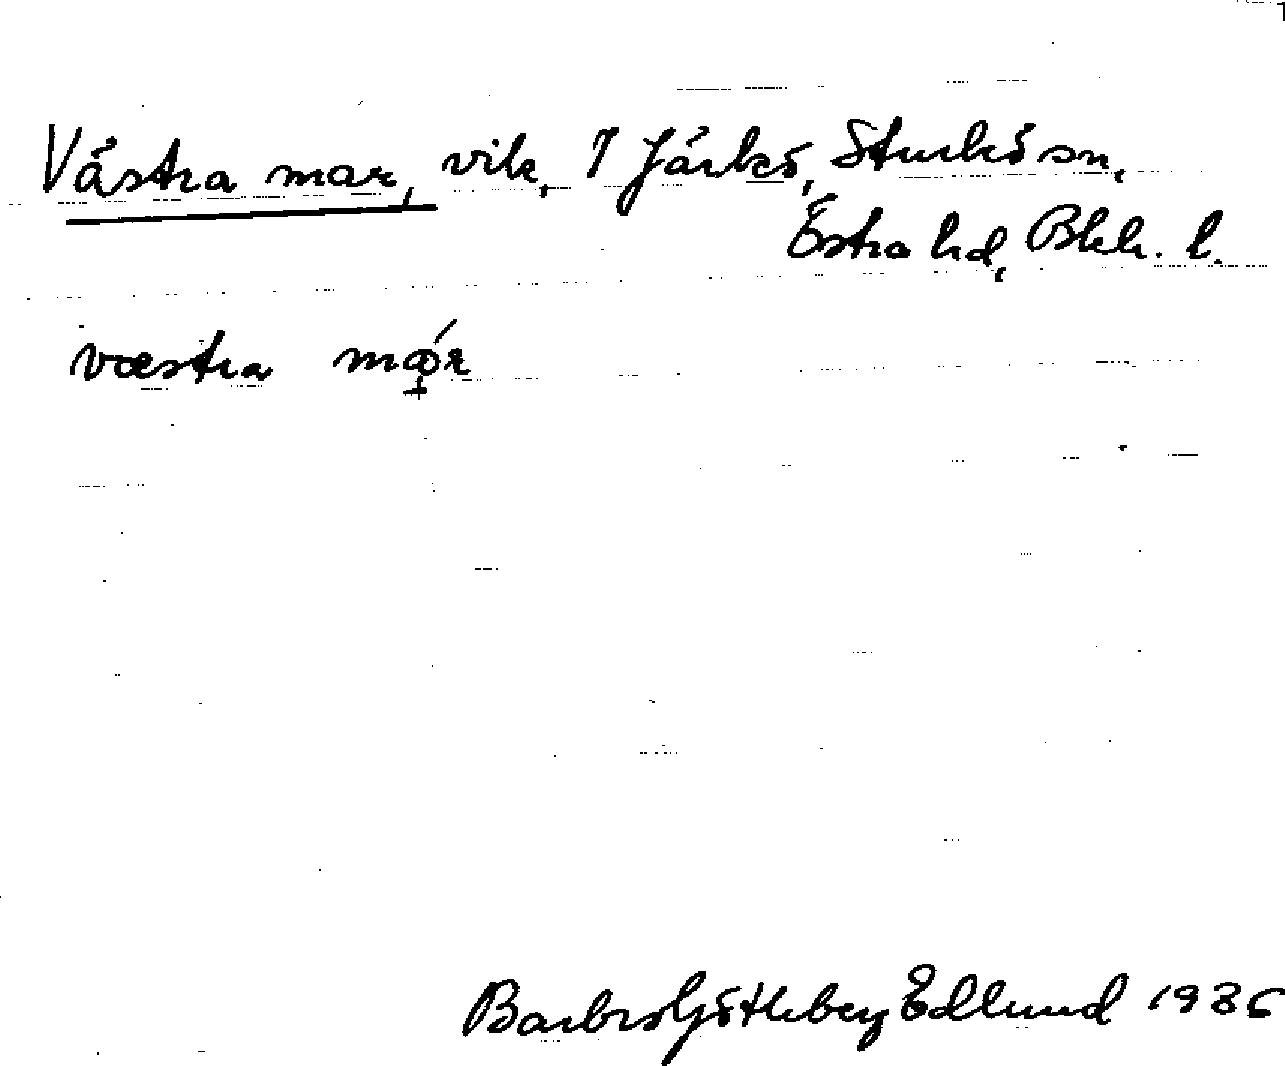 Västra mar, vik, I Järkö, Sturkö sn,
Östra hd, Blek. l.
væstra
Barbro Götlebey Edlund 1936